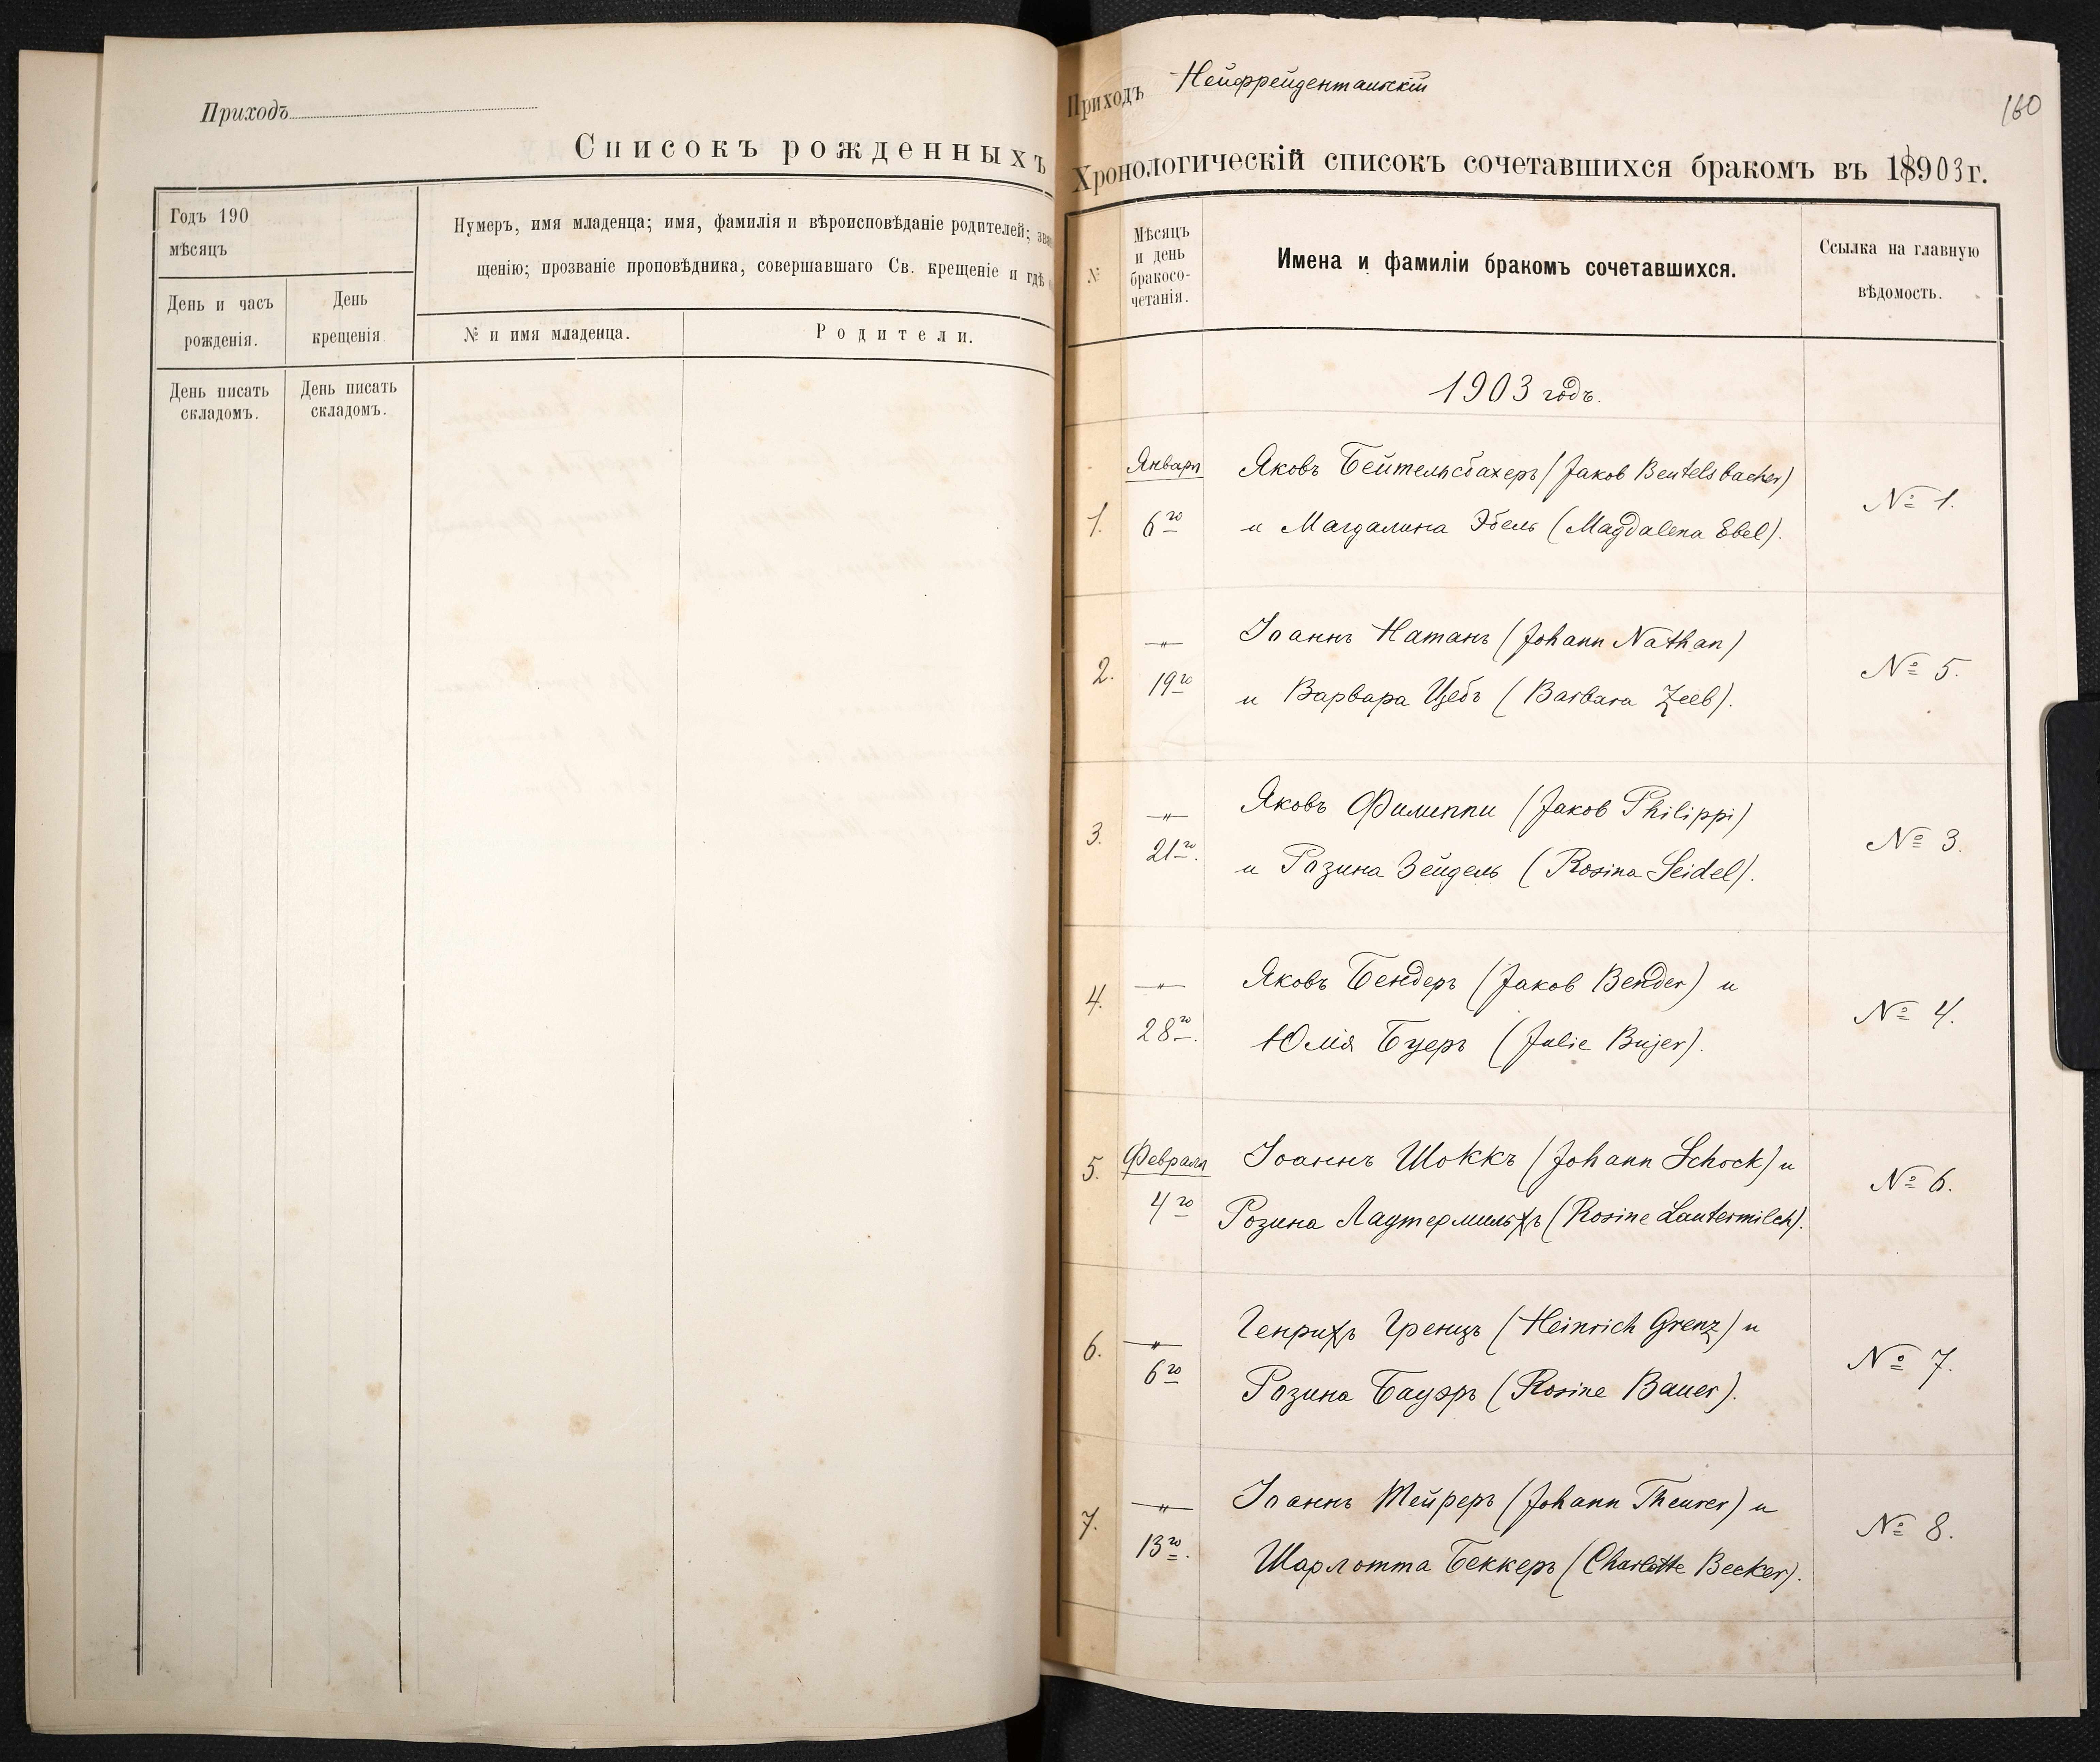 Приходъ
Списокъ рожденныхъ
Годъ 190
мѣсяцъ
День и часъ
рожденія.
День
крещенія.
Нумеръ, имя младенца; имя, фамилія и вѣроисповѣданіе родителей;
щенію; прозваніе проповѣдника, совершавшаго Св. крещеніе и гдѣ
№ и имя младенца.
Родители.
День писать
складомъ.
День писать
складомъ.
Приходъ Нейфрейдентальскій
160
Хронологическій списокъ сочетавшихся бракомъ въ 18903г.
№
Мѣсяцъ
и день
бракосо-
четанія.
Имена и фамиліи бракомъ сочетавшихся.
Ссылка на главную
вѣдомость.
1903 годъ.
Января
1. 6го
Яковъ Бейтельсбахеръ (Jakob Beutelsbacher)
и Магдалина Эбель (Magdalena Ebel).
№ 1.
2. —"— 19го
Іоаннъ Натанъ (Johann Nathan)
и Варвара Цебъ (Barbara Zeeb).
№ 5.
3. —"— 21го.
Яковъ Филиппи (Jakob Philippi)
и Розина Зейдель (Rosina Seidel).
№ 3.
4. —"— 28го.
Яковъ Бендеръ (Jakob Bender) и
Юлія Буеръ (Julie Bujer).
№ 4.
5. Февраля 4го
Іоаннъ Шоккъ (Johann Schock) и
Розина Лаутермильхъ (Rosine Lautermilch).
№ 6.
6. —"— 6го
Генрихъ Гренцъ (Heinrich Grenz) и
Розина Бауэръ (Rosine Bauer).
№ 7.
7. —"— 13го.
Іоаннъ Тейреръ (Johann Theurer) и
Шарлотта Беккеръ (Charlotte Becker).
№ 8.